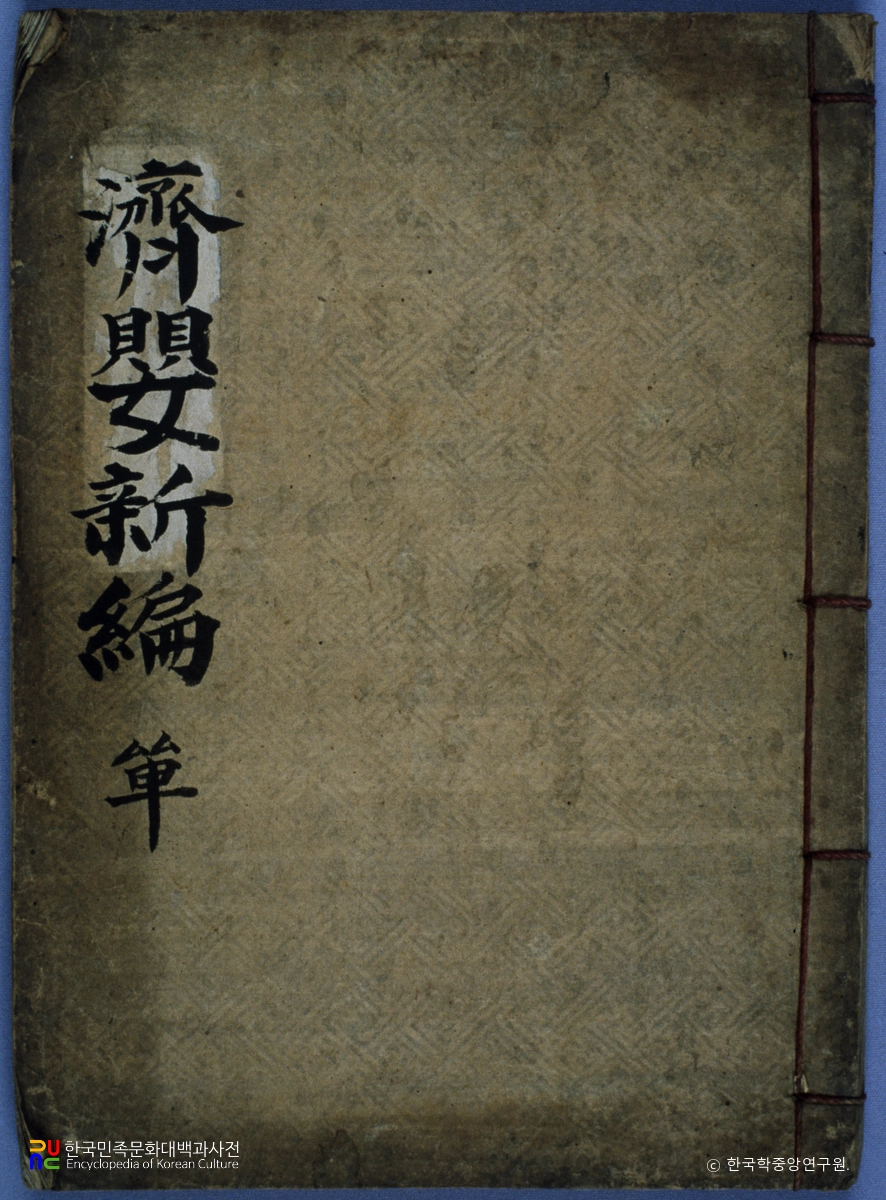 濟嬰新編 單
한국민족문화대백과사전
Encyclopedia of Korean Culture
© 한국학중앙연구원.